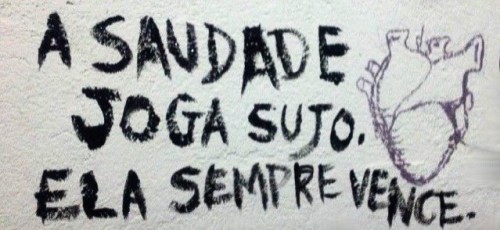 A SAUDADE
JOGA SUJO.
ELA SEMPRE VENCE.